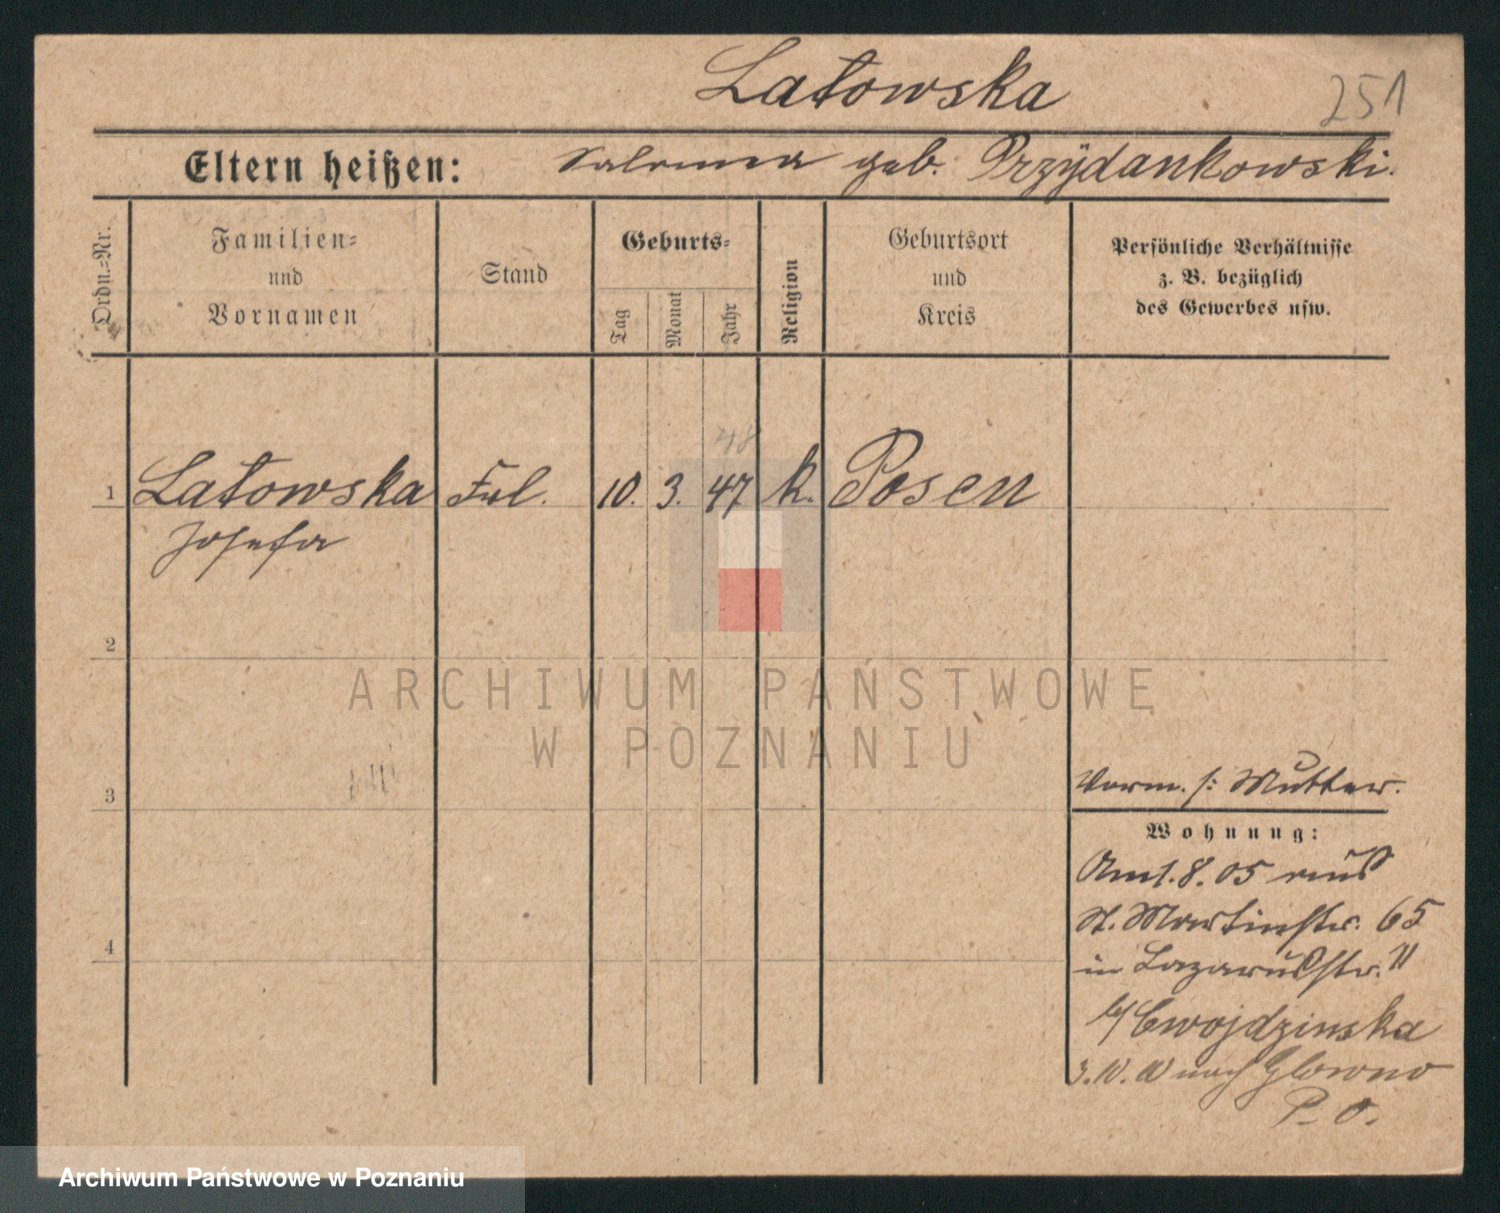 Latowska
251
Eltern heißen: Salomea geb. Przÿdankowski.
Ordn.-Nr.
Familien- und Vornamen
Stand
Geburts-
Tag
Monat
Jahr
Religion
Geburtsort und Kreis
Persönliche Verhältnisse
z. B. bezüglich
des Gewerbes usw.
48
1 Latowska Frl. 10. 3. 47 k. Posen
Josefa
2
ARCHIWUM PAŃSTWOWE
W POZNANIU
3
Vorm. s: Mutter.
Wohnung:
Am 1.8.05 aus
St. Martinstr. 65
in Lazarusstr. 11
b/ Cwojdzinska
4
nach Glowno
P. O.
Archiwum Państwowe w Poznaniu